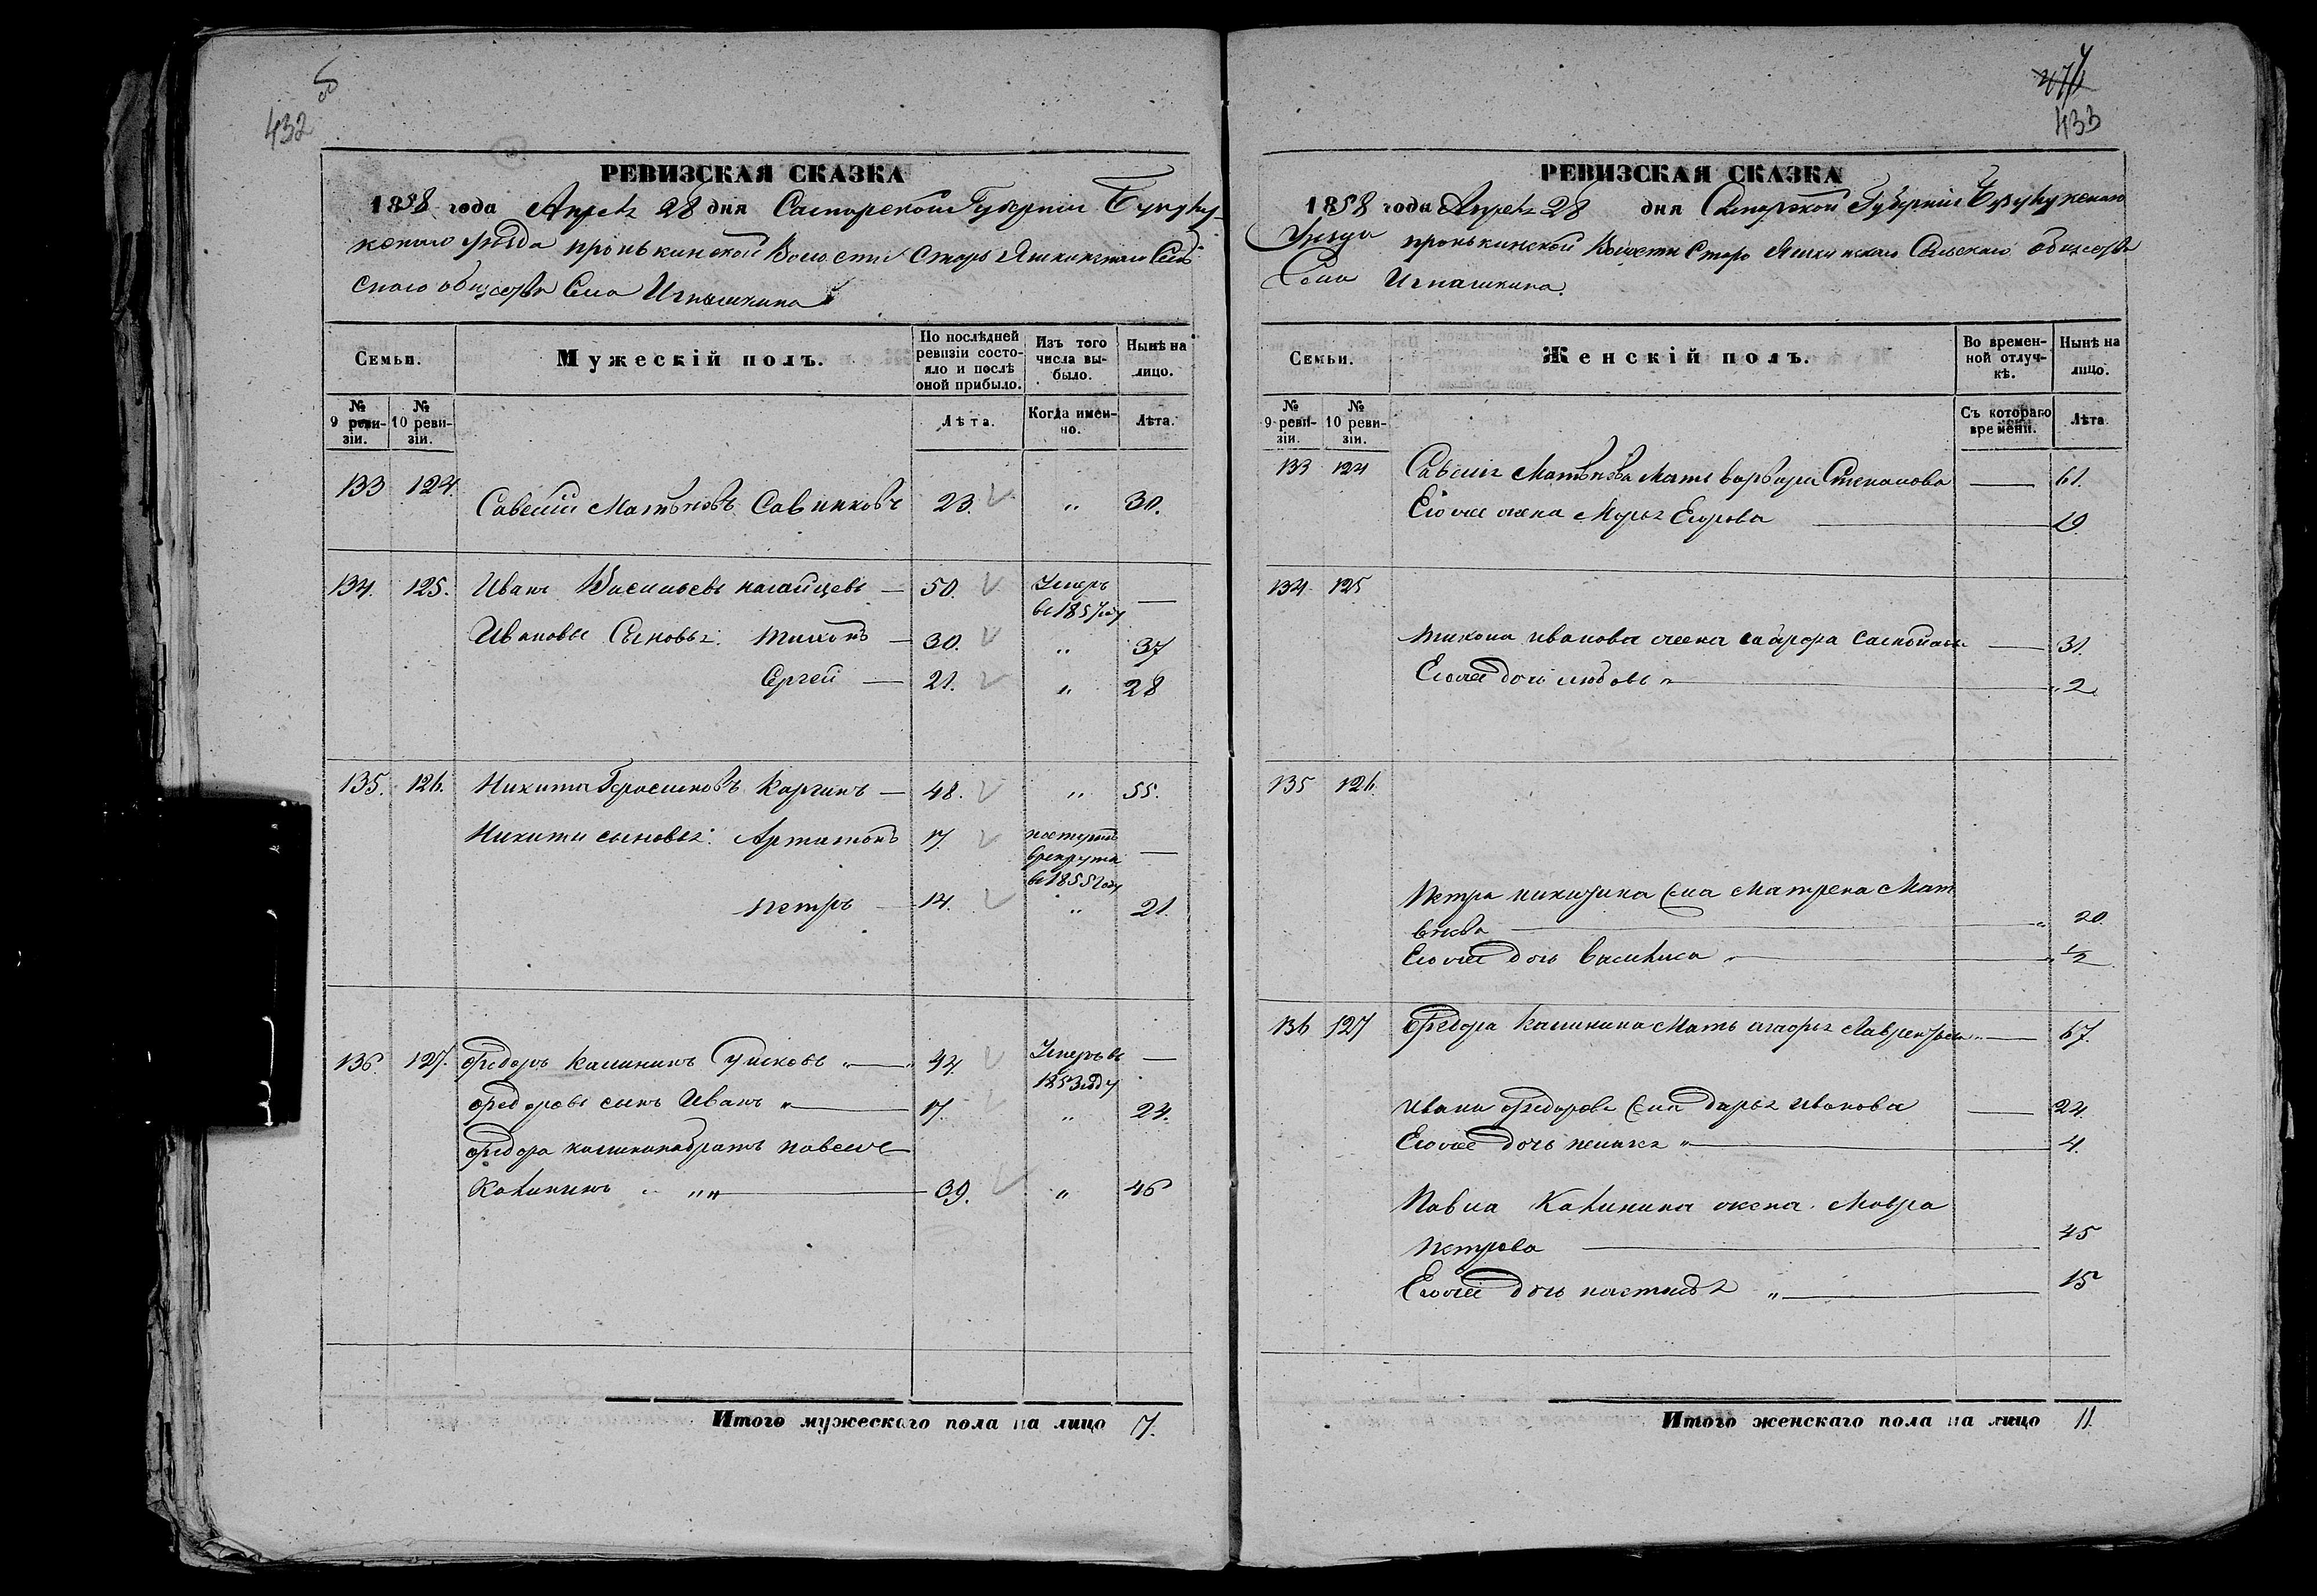 432
РЕВИЗСКАЯ СКАЗКА
1858 года Апреля 28 дня Самарской Губерніи Бузулу-
кскаго уѣзда пронькинской Волости Старо Яшкинскаго Сель
скаго общества Села Игнашкина
Семьи.
Мужескій полъ.
По послѣдней ревизіи состояло и послѣ оной прибыло.
Изъ того числа выбыло.
Нынѣ на лицо.
№ 9 ревизіи.
№ 10 ревизіи.
Лѣта.
Когда именно.
Лѣта.
133 124. Савелій Матвѣевъ Савинковъ 23. " 30.
134. 125. Иванъ Васильевъ нагайцевъ — 50. Умеръ —
въ 1857 году
Ивановы Сыновья: тихонъ — 30. " 37
Сергей — 21. " 28
135. 126. Никита Герасимовъ Каргинъ — 48. " 55.
Никиты сыновья: Артамонъ 17. поступилъ —
в рекруты
въ 1855 году
петръ — 14. " 21.
136. 127. Федоръ Калининъ Гусковъ " — " 42. Умеръ въ —
1853 году
Федоровъ сынъ Иванъ " — 17. " 24.
Федора калинина братъ павелъ
Калининъ " " — 39. " 46
Итого мужескаго пола на лицо 7.
433
РЕВИЗСКАЯ СКАЗКА
1858 года Апреля 28 дня Самарской Губерніи Бузулукскаго
Уезда пронькинской Волости Старо Яшкинскаго Сельскаго общества
Села Игнашкина.
Семьи.
Женскій полъ.
Во временной отлучкѣ.
Нынѣ на лицо.
№ 9 ревизіи.
№ 10 ревизіи.
Съ котораго времени.
Лѣта.
133 124 Савелія Матвѣева Мать варвара Степанова — 61.
Его же жена Марья Егорова — 19.
134. 125
тихона иванова жена — 31.
Его же дочь любовь " — " 2.
135 126.
Петра никитина жена матрена Мат
вѣева — " 20.
Его же дочь василиса " — " 1/2
136 127 Федора калинина Мать агафья Лаврентьева " — 67.
Ивана Федорова жена дарья иванова — 24.
Его же дочь пелагея " — 4.
Павла Калинина жена Мавра
Петрова — 45
Его же дочь настасья " — 15
Итого женскаго пола на лицо 11.